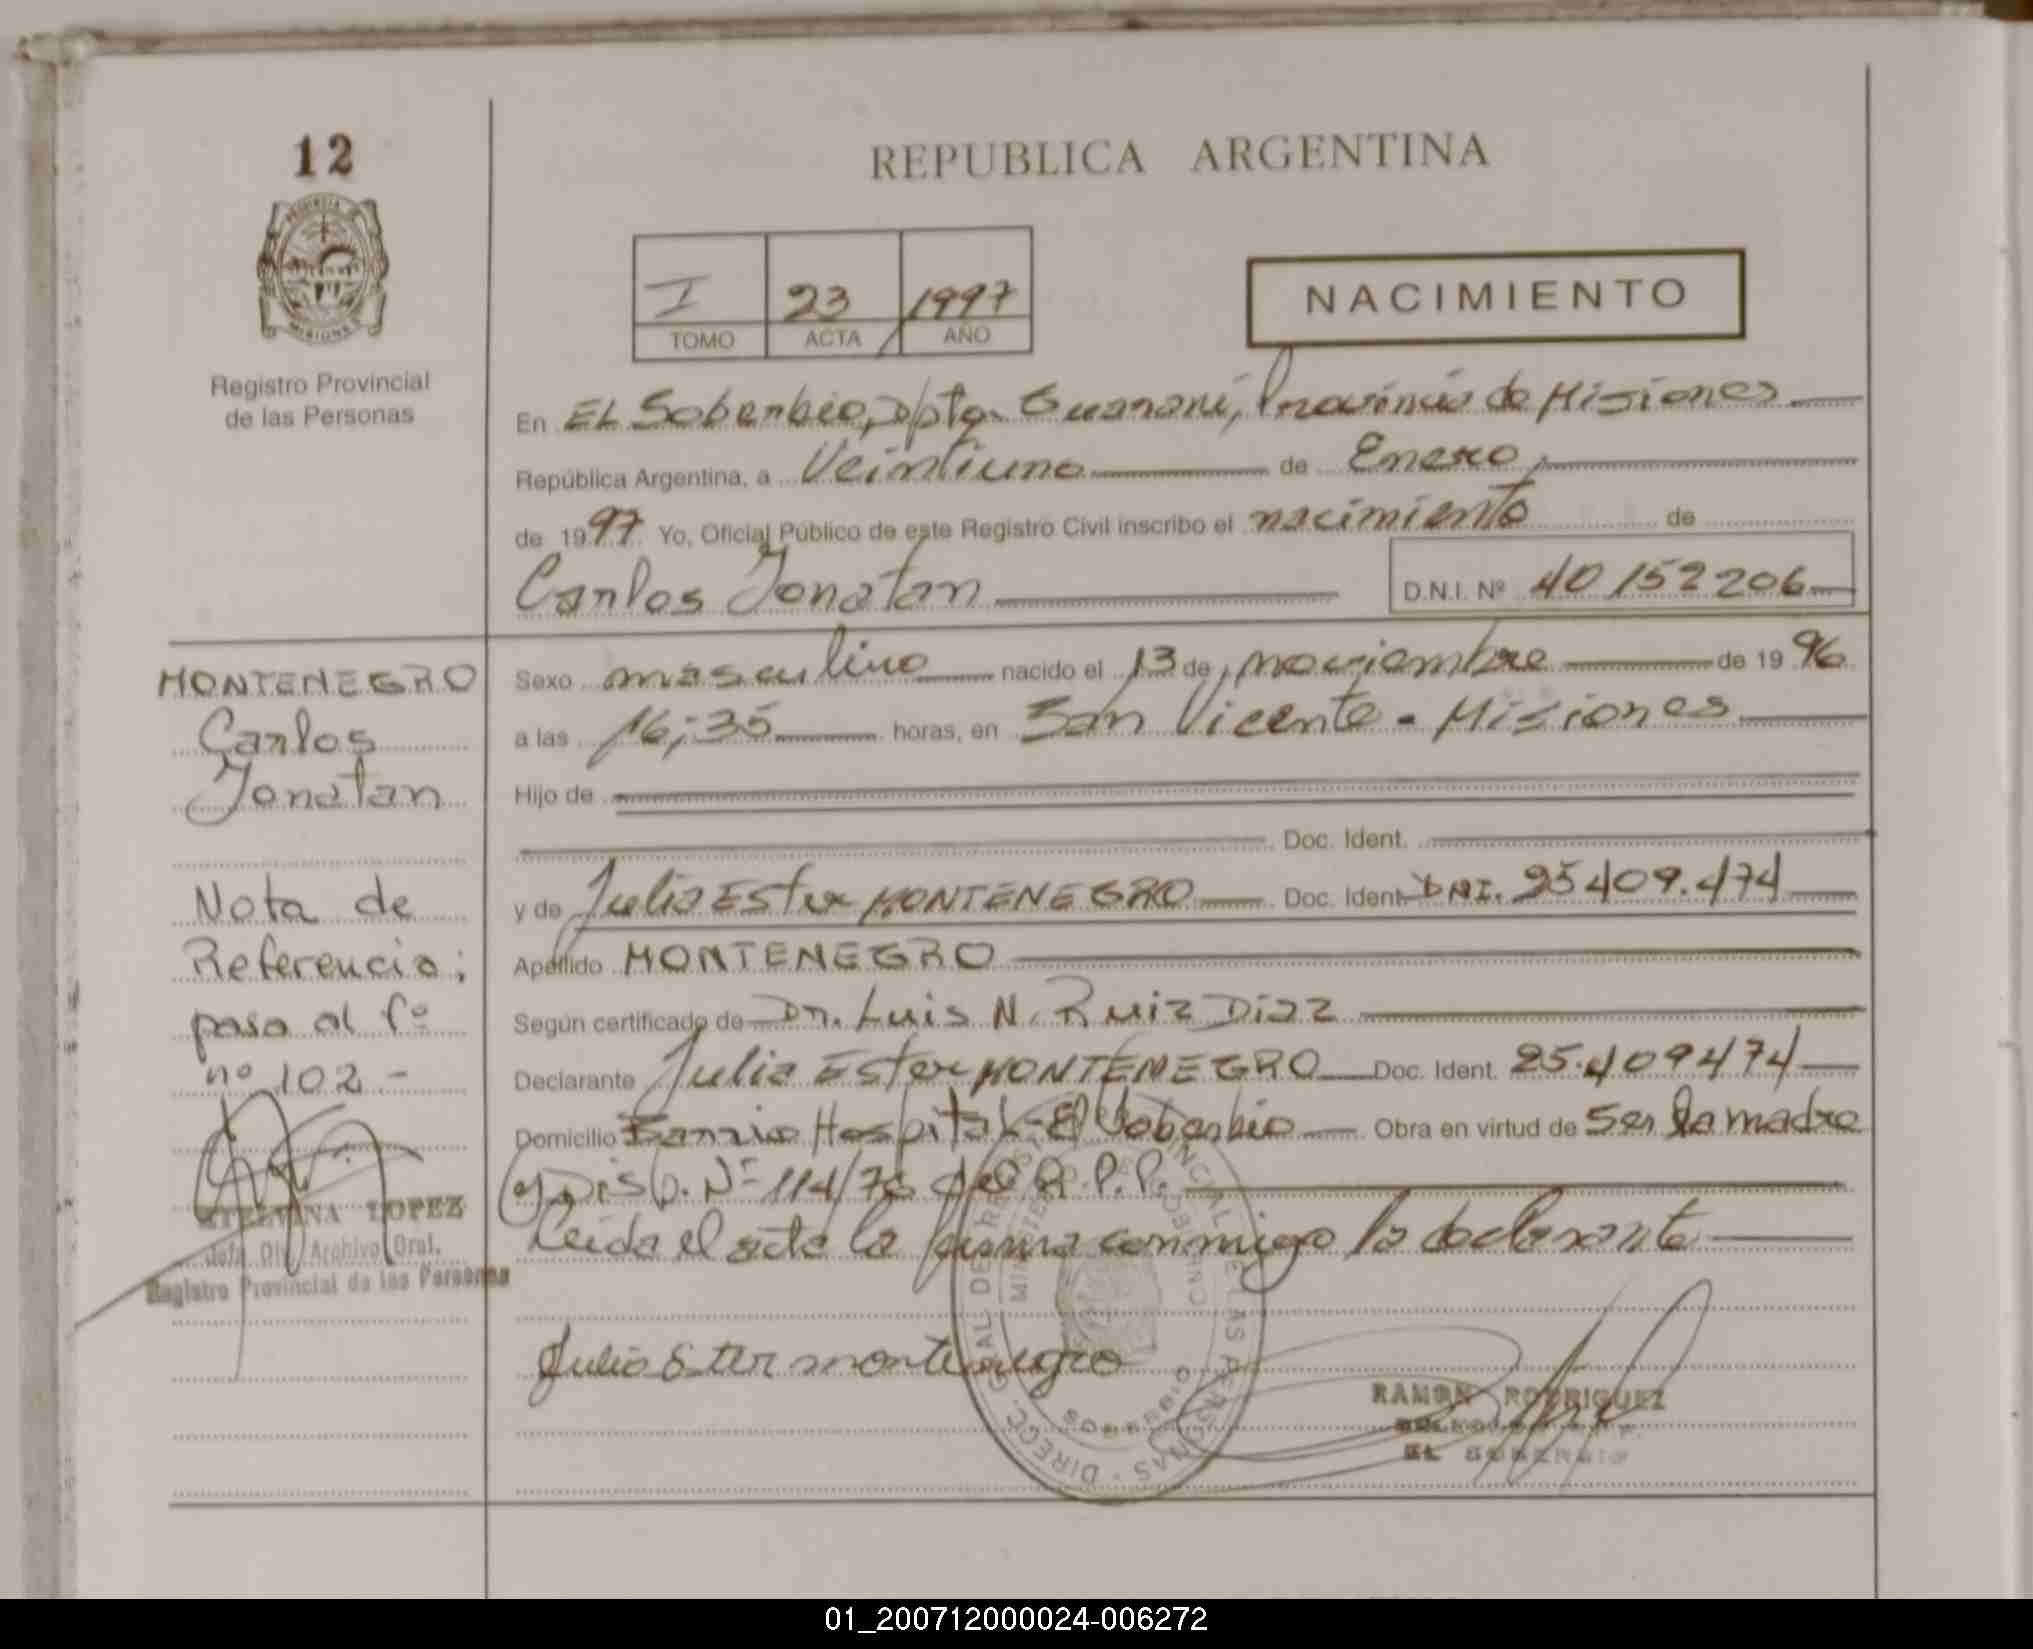 12
REPUBLICA ARGENTINA
PROVINCIA DE MISIONES
Registro Provincial
de las Personas
I 23 1997
TOMO ACTA AÑO
NACIMIENTO
En EL Soberbio, Dpto. Guaraní, Provincia de Misiones
República Argentina, a Veintiuno de Enero,
de 1997 Yo, Oficial Público de este Registro Civil inscribo el nacimiento de
Carlos Jonatan D.N.I. Nº 40152206
MONTENEGRO
Carlos
Jonatan
Nota de
Referencia:
pasa al fº
nº 102 -
LOPEZ
Jefa Div. Archivo Gral.
Registro Provincial de las Personas
Sexo masculino nacido el 13 de noviembre de 1996
a las 16:35 horas, en San Vicente - Misiones
Hijo de
Doc. Ident.
y de Julia Ester MONTENEGRO Doc. Ident. DNI. 25409.474
Apellido MONTENEGRO
Según certificado de Dr. Luis N. Ruiz Diaz
Declarante Julia Ester MONTENEGRO Doc. Ident. 25.409474
Domicilio Barrio Hospital - El Soberbio Obra en virtud de Ser la madre
y Disp. Nº 114/76 del R.P.P.
Leída el acta la firma conmigo la declarante
Julia Ester montenegro
RAMON RODRIGUEZ
EL SOBERBIO
01_200712000024-006272